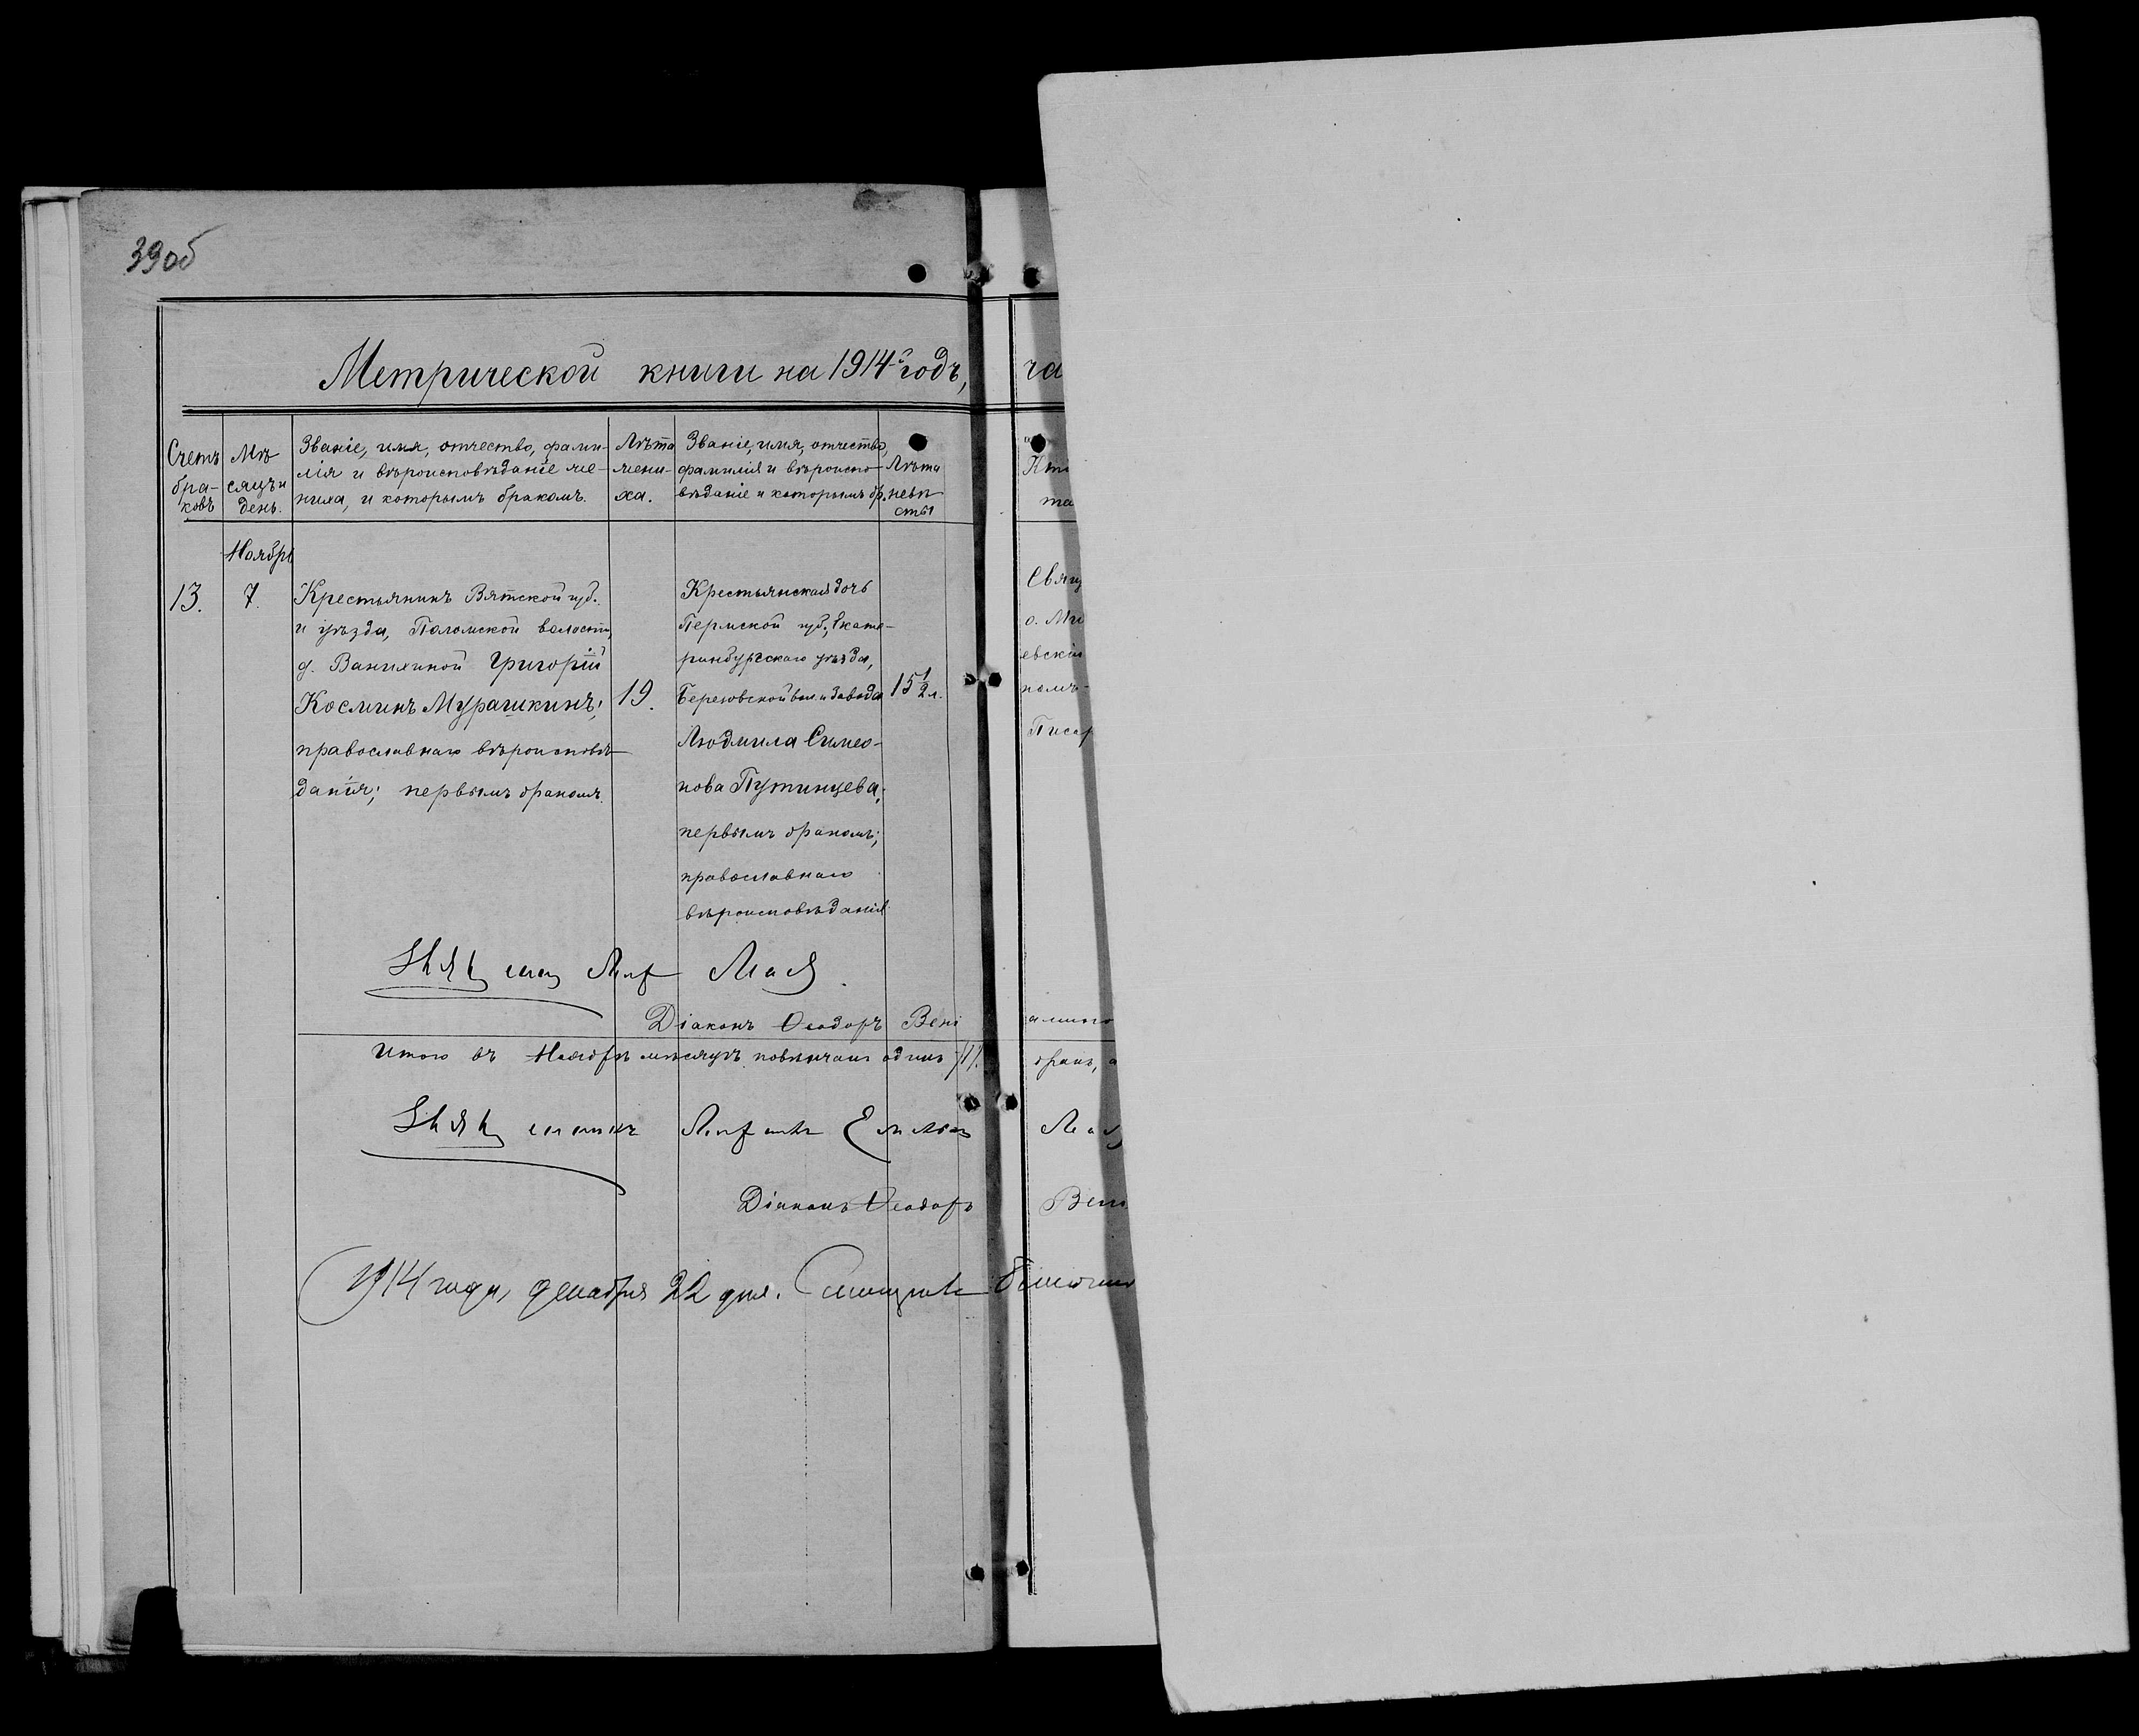 39об
Метрической книги на 1914й годъ,
ча
Счетъ бра-ковъ
Мѣ-сяцъ и день.
Званіе, имя, отчество, фами-
лія и вѣроисповѣданіе же-
ниха, и которымъ бракомъ.
Лѣта
жени-
ха.
Званіе, имя, отчество,
фамилія и вѣроиспо-
вѣданіе и которымъ бр.
Лѣта
невѣ
сты
Ноябрь
13.
7.
Крестьянинъ Вятской губ.
и уѣзда, Паломской волости,
д. Ванихиной Григорій
Косминъ Мурашкинъ;
православнаго вѣроисповѣ-
данія; первымъ бракомъ.
19.
Крестьянская дочь
Пермской губ., Екате-
ринбургскаго уѣзда,
Березовской вол. и завода
Людмила Симео-
нова Путинцева;
первымъ бракомъ;
православнаго
вѣроисповѣданія
15 1/2 л.
Свящ
о. Ми
евскій
Писар
Діаконъ Ѳеодоръ Вені
Итого въ Ноябрѣ мѣсяцѣ повѣнчанъ одинъ /1/.
бракъ, а
Діаконъ Ѳеодоръ
Вені
1914 года, декабря 22 дня.